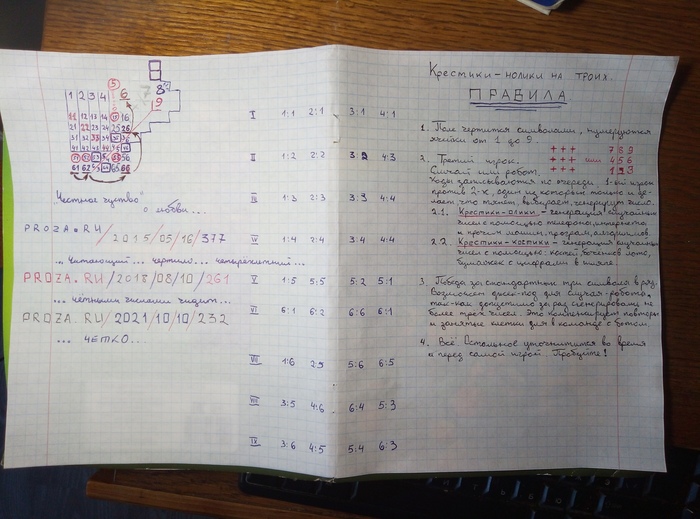 5
1 2 3 4 6 7 8
9
11 12 13 14 15 16
21 22 23 24 25 26
61 62 63 64 65 66
"Честное чувство"
о любви...
PROZA.RU / 2015/05/16/377
... читающий... чертит... четырежитий...
PROZA.RU/2018/08/10/261
... чётными числами чудит...
PROZA.RU/2021/10/10/232
... чётко...
I 1:1 2:1 3:1 4:1
II 1:2 2:2 3:2 4:3
III 1:3 2:3 3:3 4:4
IV 1:4 2:4 3:4 4:4
V 1:5 5:5 5:2 5:1
VI 6:1 6:2 6:6 6:1
VII 1:6 2:5 5:6 6:5
VIII 3:5 4:6 6:4 5:3
IX 3:6 4:5 5:4 6:3
Крестики-нолики на троих.
ПРАВИЛА
1. Поле чертится символами, нумеруются
ячейки от 1 до 9.
+++ 7 8 9
2. Третий игрок. +++ или 4 5 6
Случай или робот. +++ 1 2 3
Ходы записываются по очереди. 1-ый игрок
против 2-х, один из которых только и де-
лает, что тянет, выбирает, генерирует число.
2.1. Крестики-олики - генерация случайных
чисел с помощью телефона, интернета
и прочих машин, программ, алгоритмов.
2.2. Крестики-костики - генерация случайных
чисел с помощью: костей, бочонков лото,
бумажек с цифрами в шляпе.
3. Победа за стандартный три символа в ряд.
Возможен двойной ход для случая-робота.
так-как допустимо за раз сгенерировать не
более трёх чисел. Это компенсирует повторы
и занятые клетки для в команде с ботом.
4. Всё! Остальное уточнится во время
и перед самой игрой. Пробуйте!